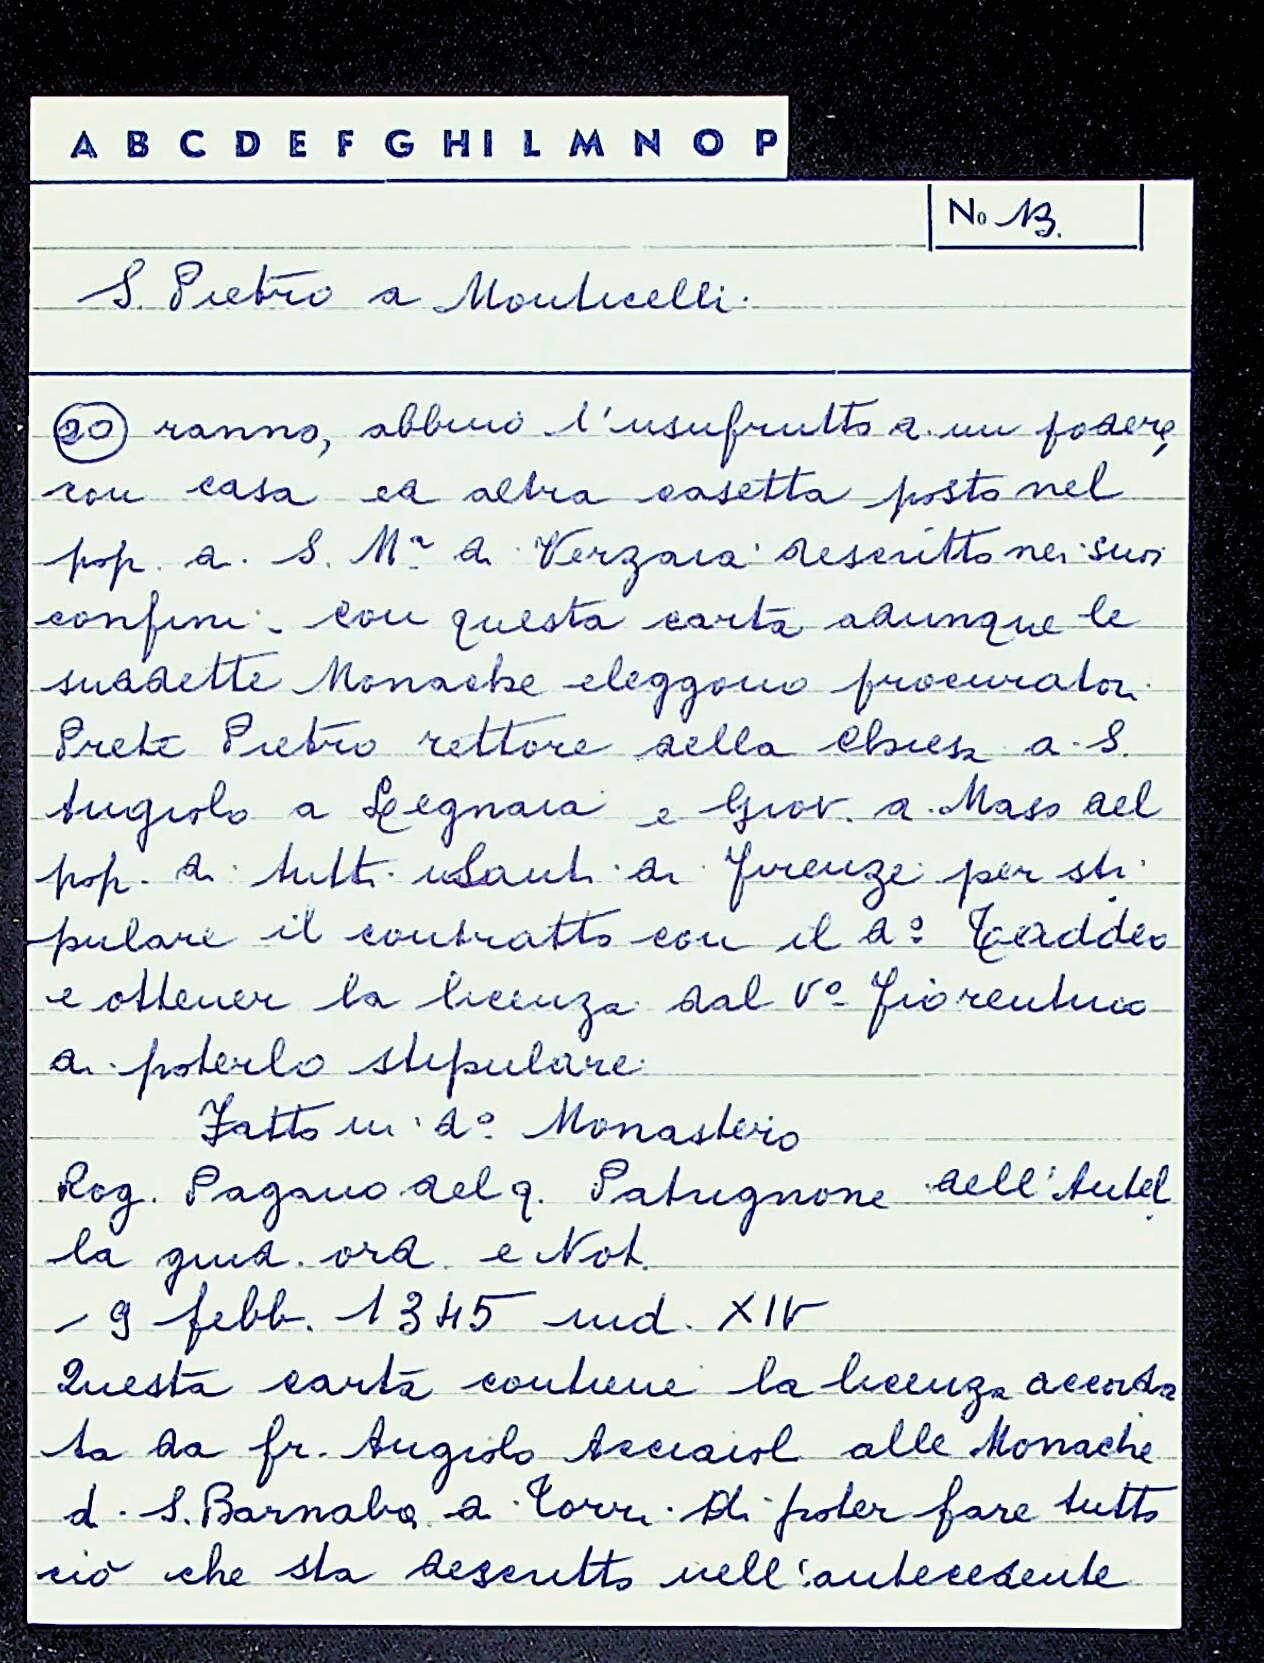 A B C D E F G H I L M N O P
No 13.
S. Pietro a Monticelli.
20 ranno, abbino l'usufrutto di un podere,
con casa ed altra casetta posto nel
pop. di S. Mª di Verzaia descritto nei suoi
confini. Con questa carta adunque le
suddette Monache eleggono procuratori
Prete Pietro rettore della Chiesa di S.
Angiolo a Legnaia e Giov. di Maso del
pop. di tutti i Santi di Firenze per sti
pulare il contratto con il dº Taddeo
e ottener la licenza dal Vº Fiorentino
di poterlo stipulare.
Fatto in dº Monastero
Rog. Pagano del q. Patrignone dell'Antel
la giud. ord. e Not.
- 9 febb. 1345 ind. XIV
Questa carta contiene la licenza accorda
ta da fr. Angiolo Acciaiol alle Monache
d. S. Barnaba a Torri di poter fare tutto
ciò che sta descritto nell'antecedente